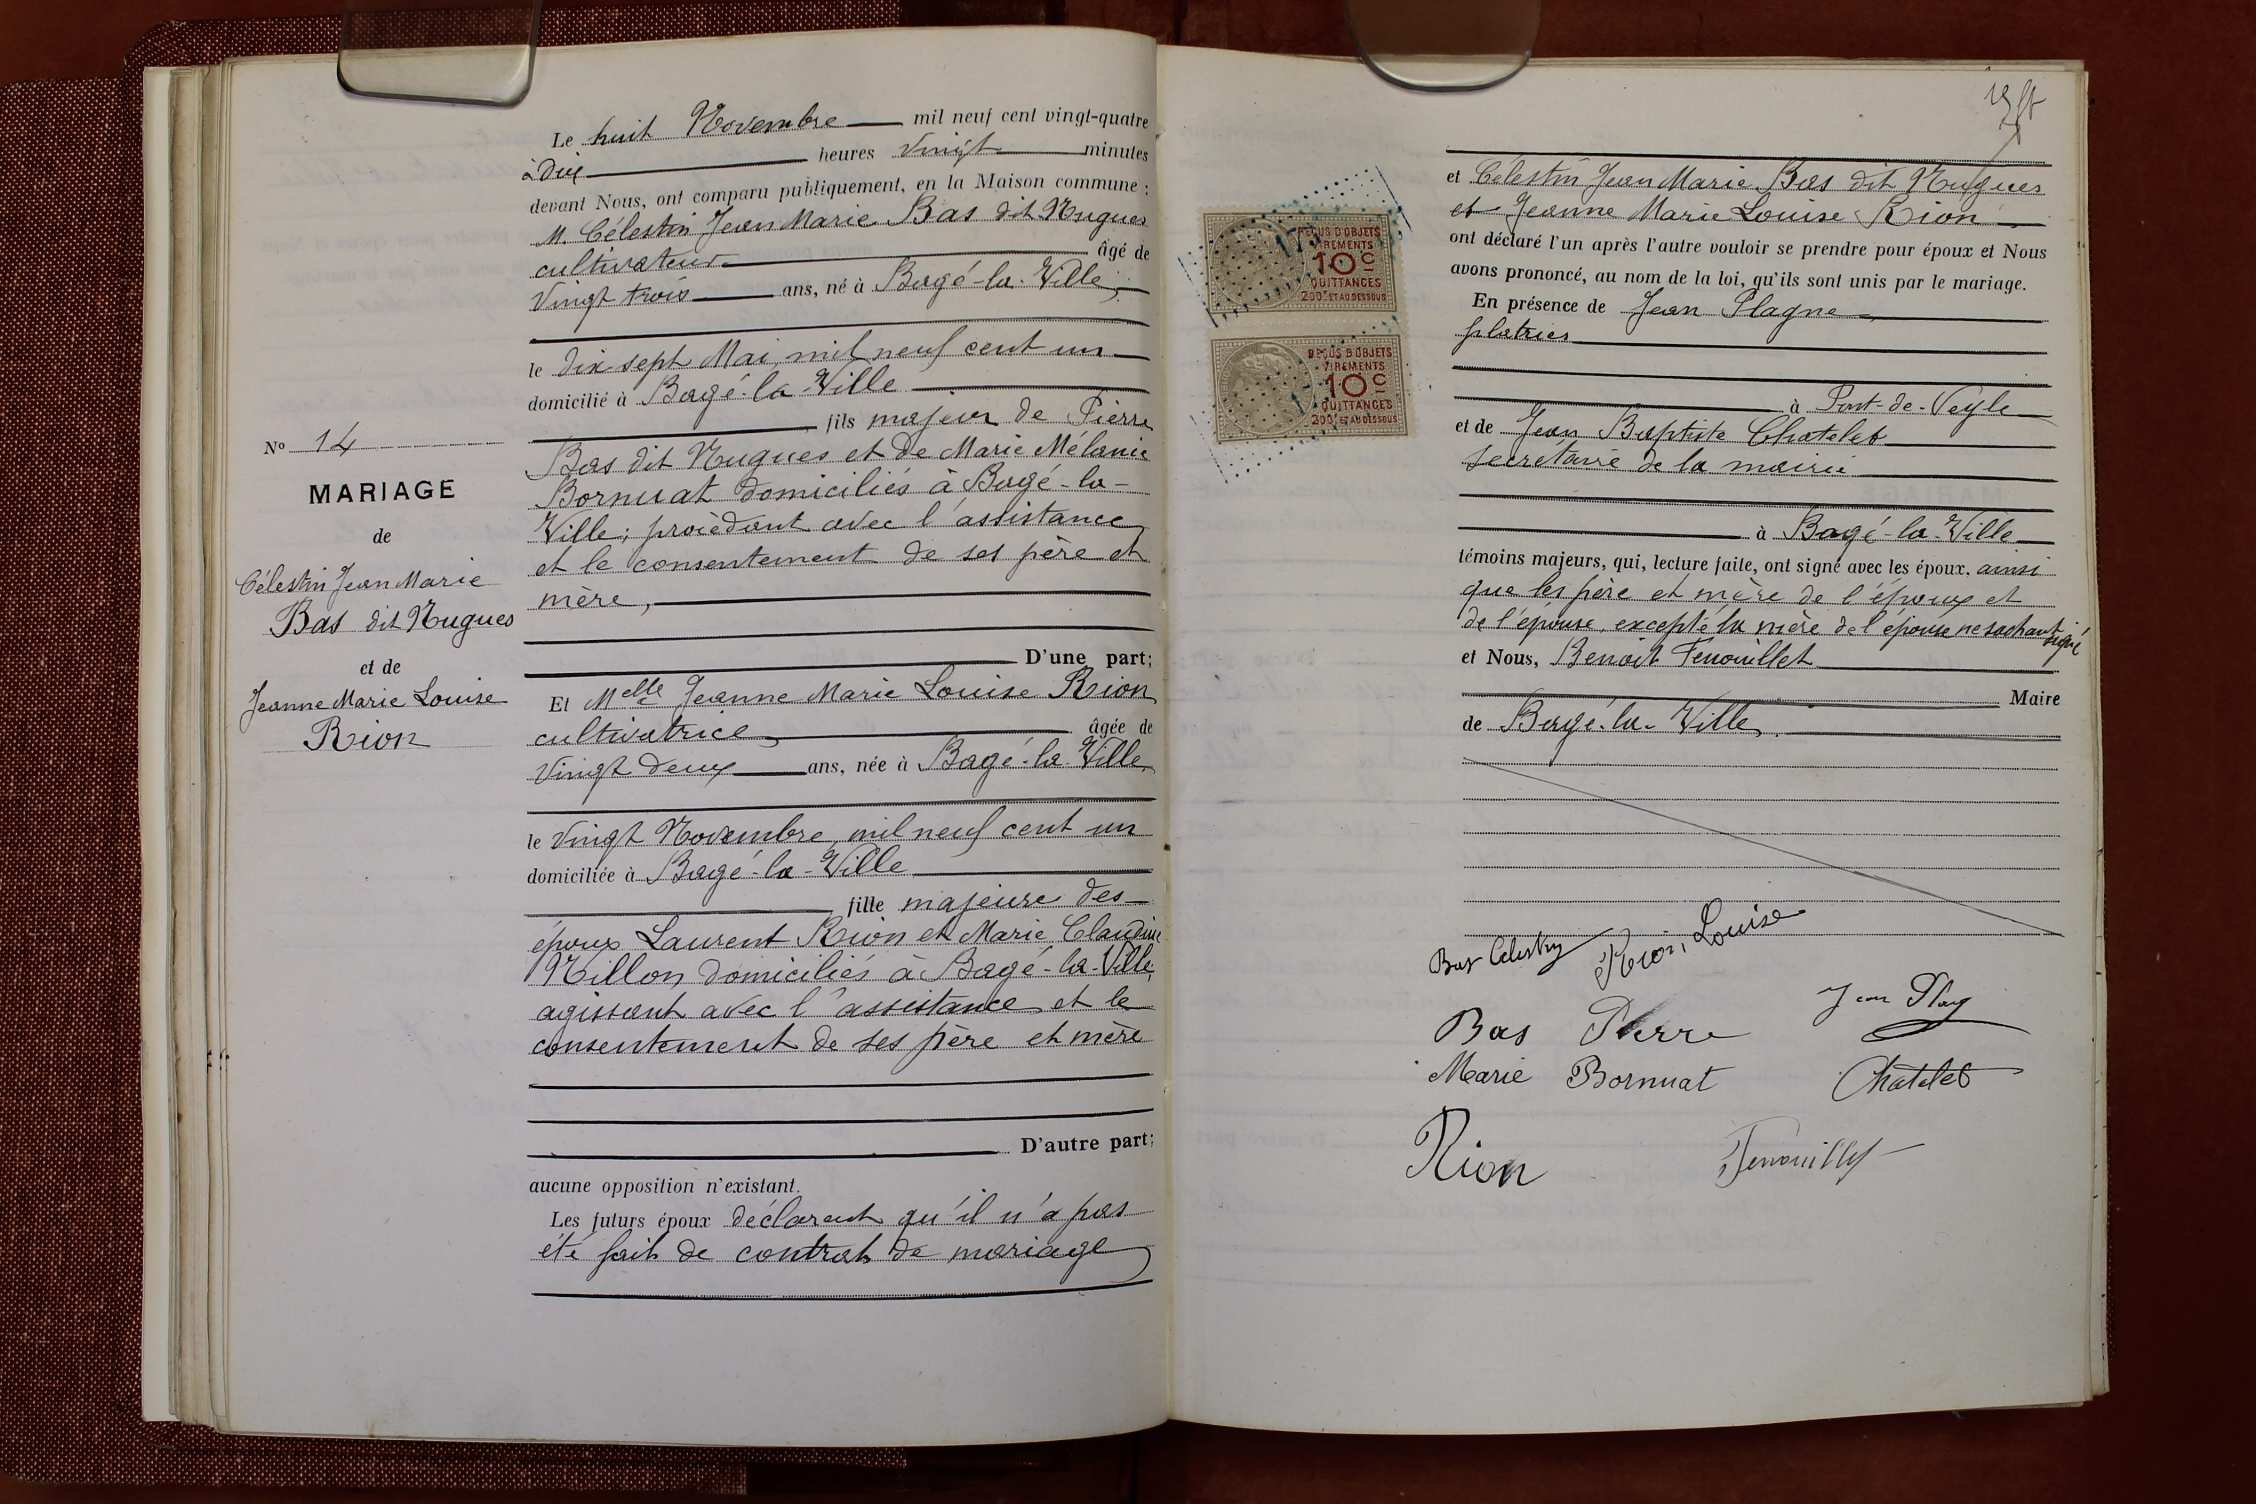 Le huit Novembre mil neuf cent vingt-quatre
à dix heures vingt minutes
devant Nous, ont comparu publiquement, en la Maison commune :
M. Célestin Jean Marie Bas dit Nugues
cultivateur âgé de
vingt trois ans, né à Bagé-la-Ville,
le dix-sept Mai mil neuf cent un
domicilié à Bagé-la-Ville
fils majeur de Pierre
Bas dit Nugues et de Marie Mélanie
Bornuat domiciliés à Bagé-la-
Ville; procédant avec l'assistance
et le consentement de ses père et
mère,
D'une part;
Et Melle Jeanne Marie Louise Rion
cultivatrice, âgée de
vingt deux ans, née à Bagé-la-Ville,
le vingt Novembre mil neuf cent un
domiciliée à Bagé-la-Ville
fille majeure des
époux Laurent Rion et Marie Claudine
Millon, domiciliés à Bagé-la-Ville,
agissant avec l'assistance et le
consentement de ses père et mère
D'autre part;
aucune opposition n'existant.
Les futurs époux déclarent qu'il n'a pas
été fait de contrat de mariage
No 14
MARIAGE
de
Célestin Jean Marie
Bas dit Nugues
et de
Jeanne Marie Louise
Rion
et Célestin Jean Marie Bas dit Nugues
et Jeanne Marie Louise Rion
ont déclaré l'un après l'autre vouloir se prendre pour époux et Nous
avons prononcé, au nom de la loi, qu'ils sont unis par le mariage.
En présence de Jean Plagne
platrier
à Pont-de-Veyle
et de Jean Baptiste Chatelet
secrétaire de la mairie
à Bagé-la-Ville
témoins majeurs, qui, lecture faite, ont signé avec les époux. ainsi
que les père et mère de l'époux et
de l'épouse, excepté la mère de l'épouse ne sachant
signé
et Nous, Benoit Fenouillet
Maire
de Bagé-la-Ville.
REÇUS D'OBJETS
VIREMENTS
10c
QUITTANCES
200f ET AU DESSOUS
REÇUS D'OBJETS
VIREMENTS
10c
QUITTANCES
200f ET AU DESSOUS
Bas Célestin Rion, Louise
Bas Pierre Jean Plag
Marie Bornuat Chatelet
Rion Fenouillet